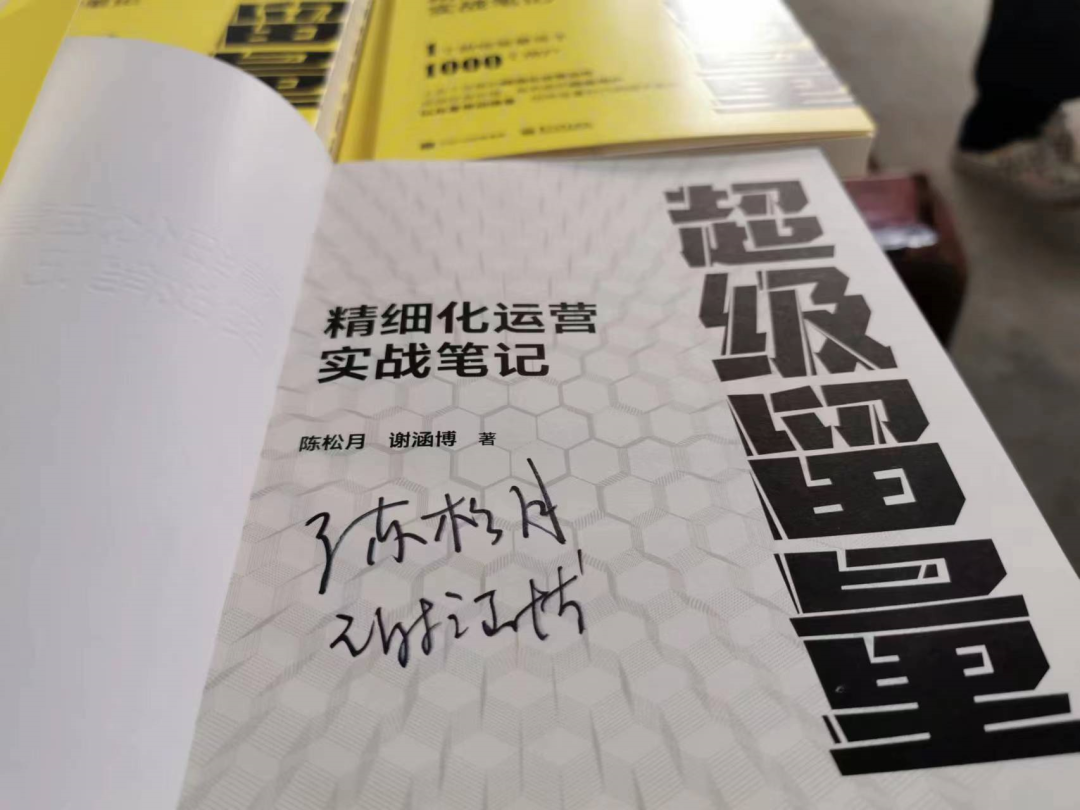 实战笔记
1
1000
精细化运营
实战笔记
陈松月 谢涵博 著
陈松月
谢涵博
超级留量